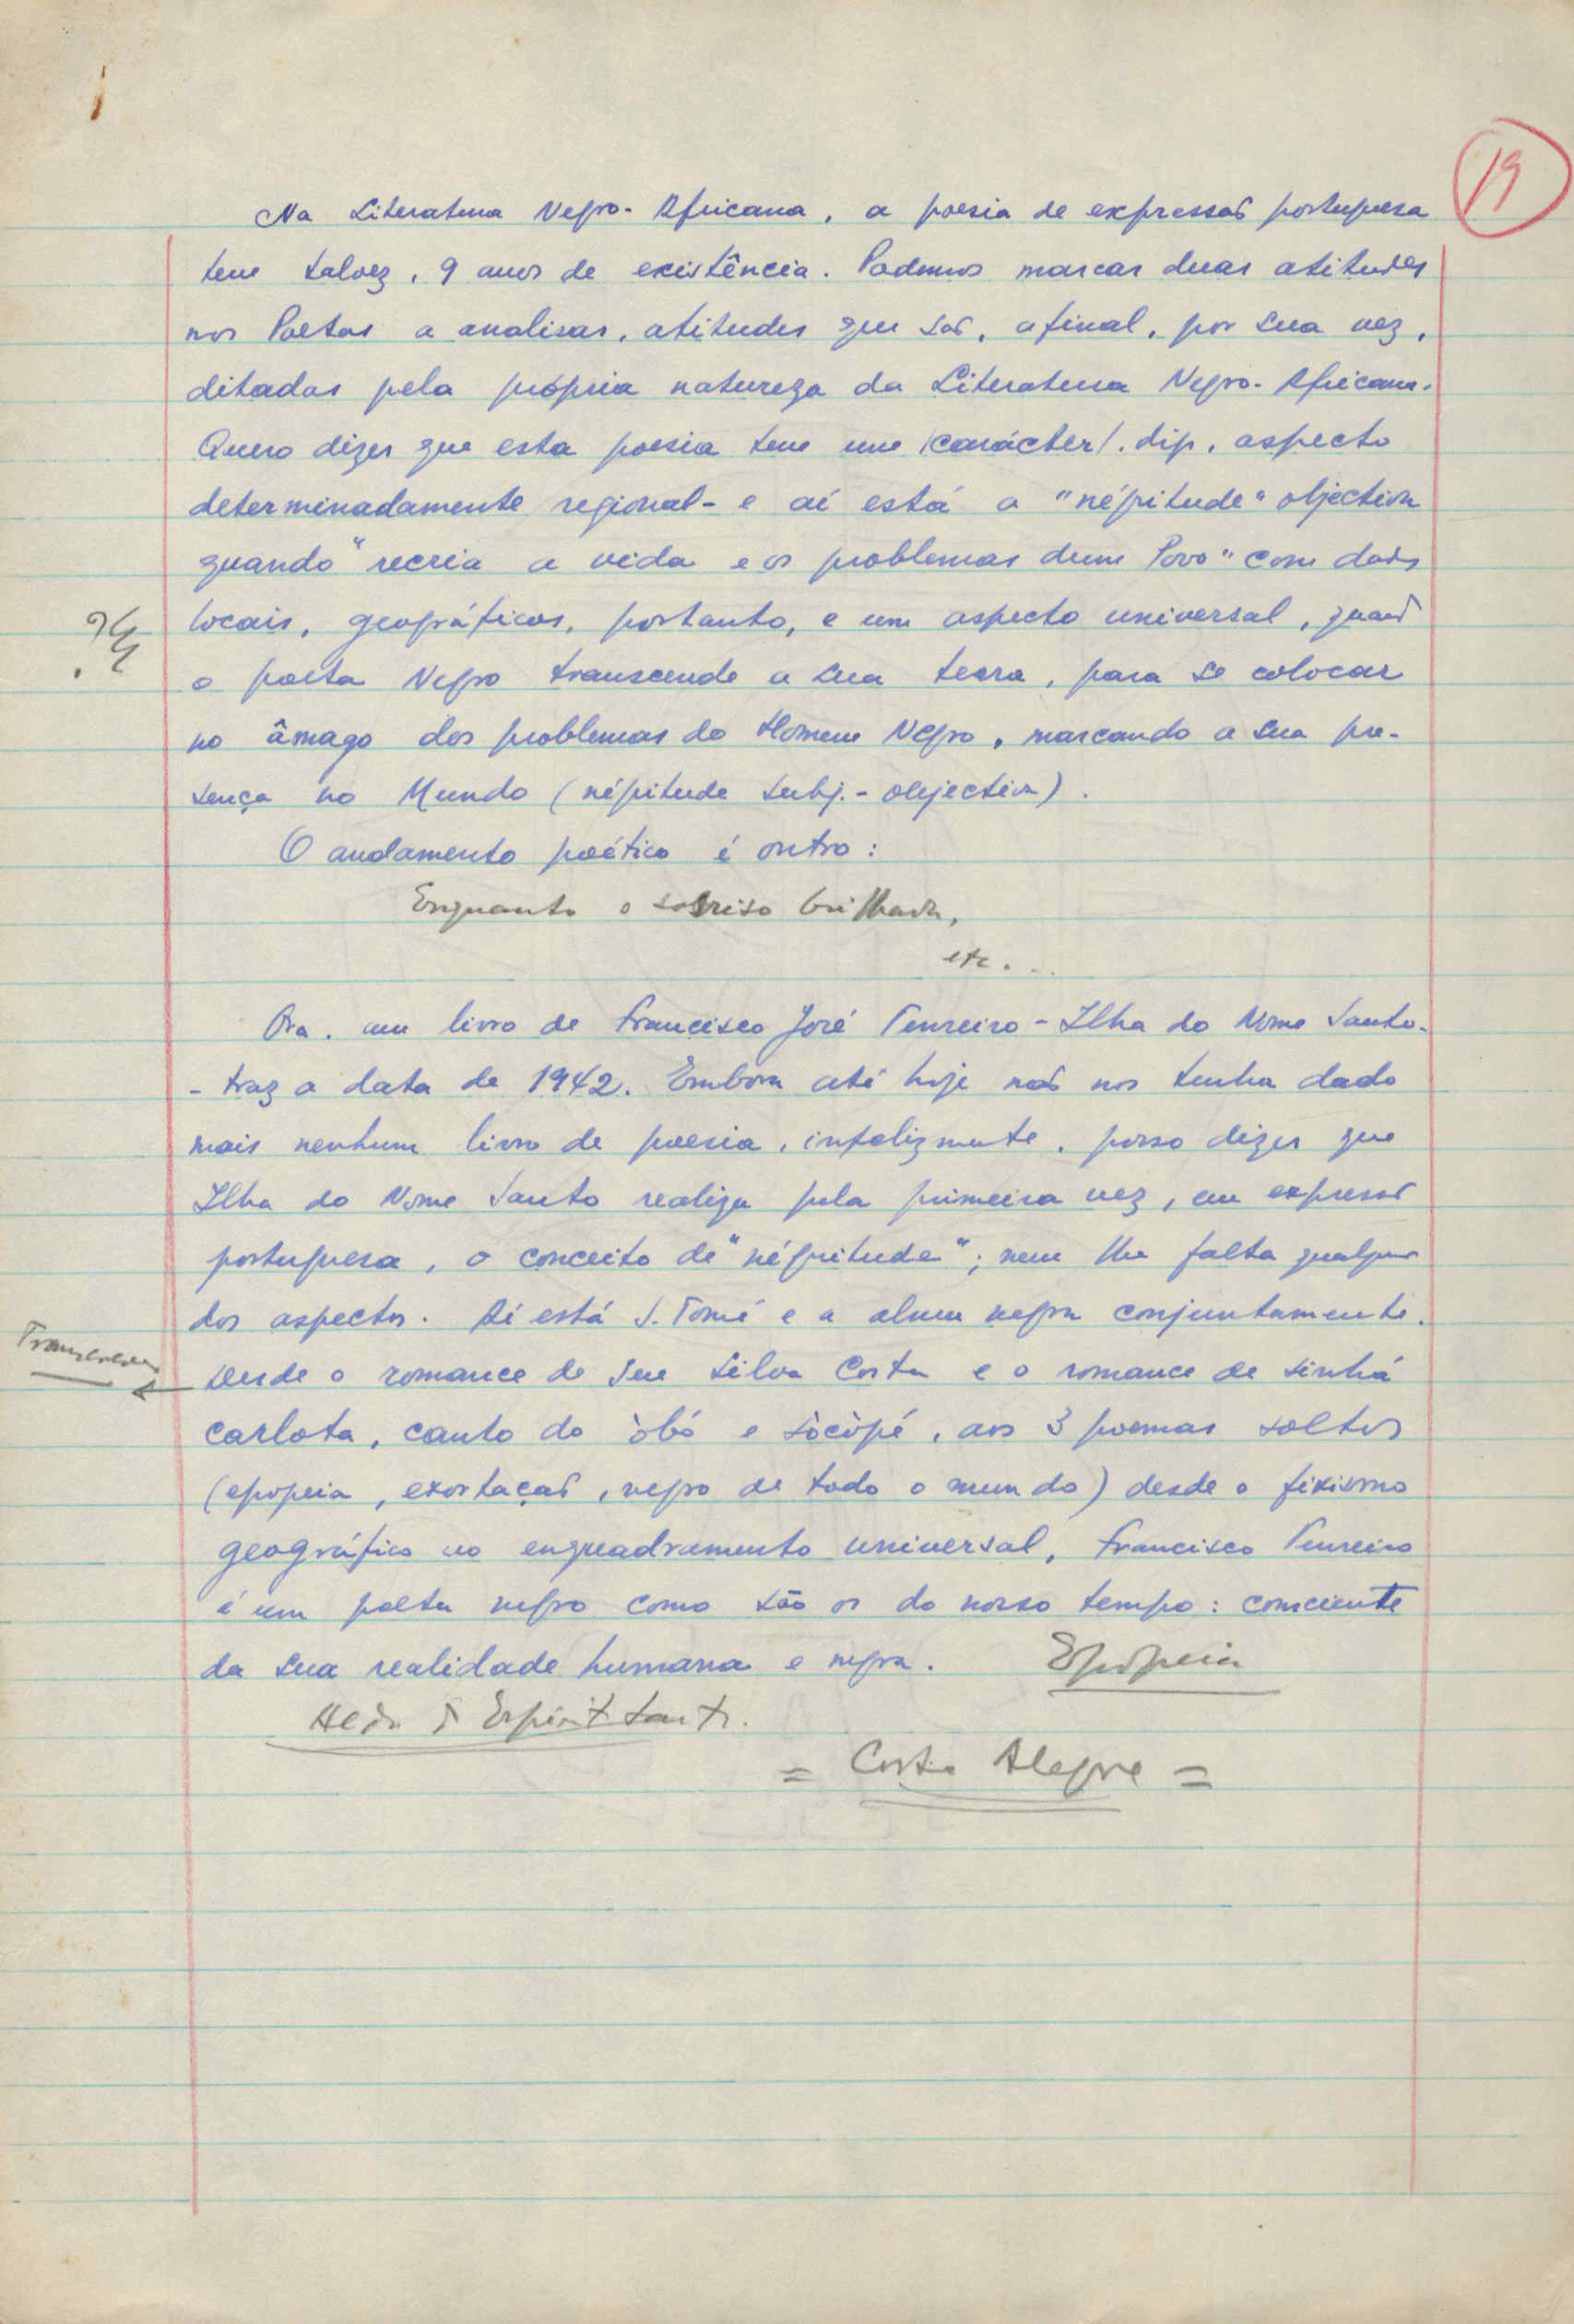 19
Na Literatura Negro-Africana, a poesia de expressão portuguesa
tem talvez, 9 anos de existência. Podemos marcar duas atitudes
nos Poetas a analisar, atitudes que são, afinal, por sua vez,
ditadas pela própria natureza da Literatura Negro-Africana.
Quero dizer que esta poesia tem um /carácter/. digo, aspecto
determinadamente regional - e aí está a "négritude" objectiva
quando "recria a vida e os problemas dum Povo" com dados
locais, geográficos, portanto, e um aspecto universal, quando
o poeta Negro transcende a sua terra, para se colocar
no âmago dos problemas do Homem Negro, marcando a sua pre-
sença no Mundo (négritude subj.-objectiva).
O andamento poético é outro:
Enquanto o sorriso brilhava,
etc...
Ora. um livro de Francisco José Tenreiro - Ilha do Nome Santo -
- traz a data de 1942. Embora até hoje não nos tenha dado
mais nenhum livro de poesia, infelizmente, posso dizer que
Ilha do Nome Santo realiza pela primeira vez, em expressão
portuguesa, o conceito de "négritude"; nem lhe falta qualquer
dos aspectos. Aí está S. Tomé e a alma negra conjuntamente.
Desde o romance de Seu Silva Costa e o romance de sinhá
carlota, canto do òbó e sòcòpé, aos 3 poemas soltos
(epopeia, exortação, negro de todo o mundo) desde o fixismo
geográfico ao enquadramento universal, Francisco Tenreiro
é um poeta negro como são os do nosso tempo: consciente
da sua realidade humana e negra. Epopeia
Alda do Espírito Santo.
= Costa Alegre =